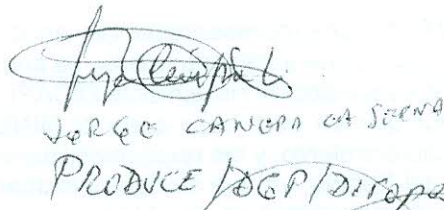 JORGE CANEPA LA SERNA
PRODUCE/DGP/Diropa